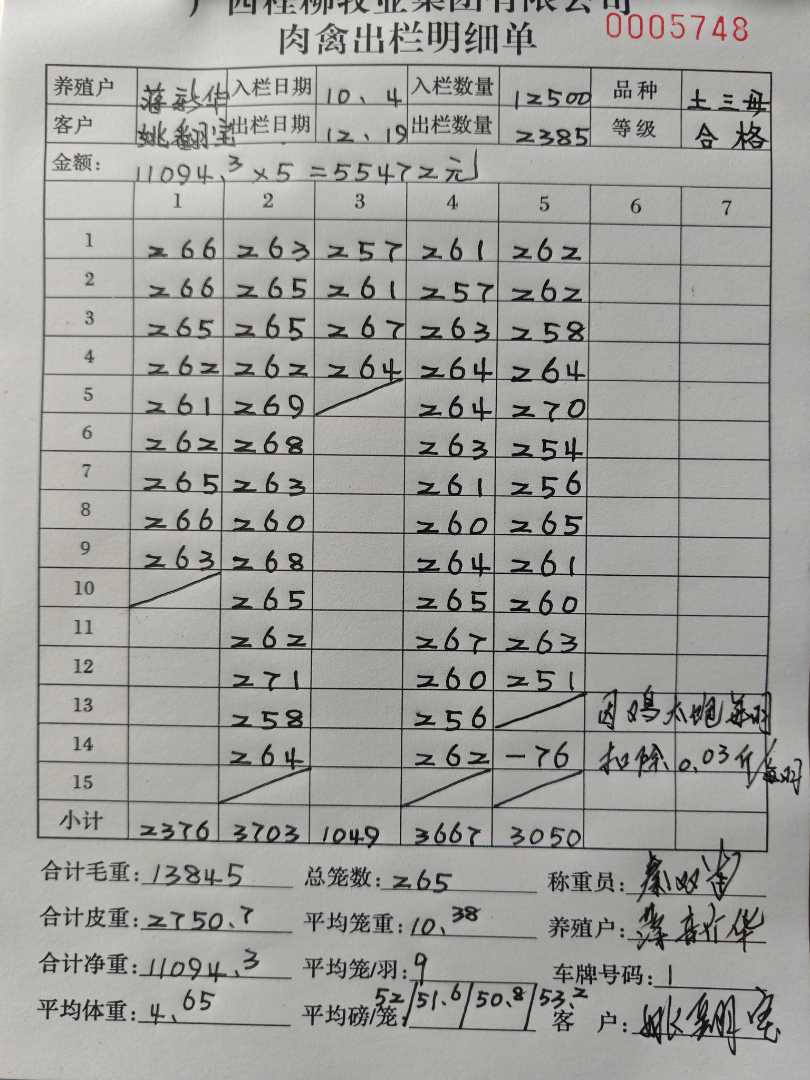 广西桂柳牧业集团有限公司
肉禽出栏明细单 0005748
养殖户 蒋新华 入栏日期 10、4 入栏数量 12500 品种 土三母
客户 姚翻宝 出栏日期 12、19 出栏数量 2385 等级 合格
金额: 11094.3×5=55472元
1 2 3 4 5 6 7
1 266 263 257 261 262
2 266 265 261 257 262
3 265 265 267 263 258
4 262 262 264 264 264
5 261 269 264 270
6 262 268 263 254
7 265 263 261 256
8 266 260 260 265
9 263 268 264 261
10 265 265 260
11 262 267 263
12 271 260 251
13 258 256 因鸡太饱每羽
14 264 262 -76 扣除0.03斤/每羽
15
小计 2376 3703 1049 3667 3050
合计毛重: 13845 总笼数: 265 称重员:
合计皮重: 2750.7 平均笼重: 10.38 养殖户: 新华
合计净重: 11094.3 平均笼/羽: 9 车牌号码: 1
平均体重: 4.65 平均磅/笼: 52/51.6/50.8/53.2 客 户: 姚翻宝